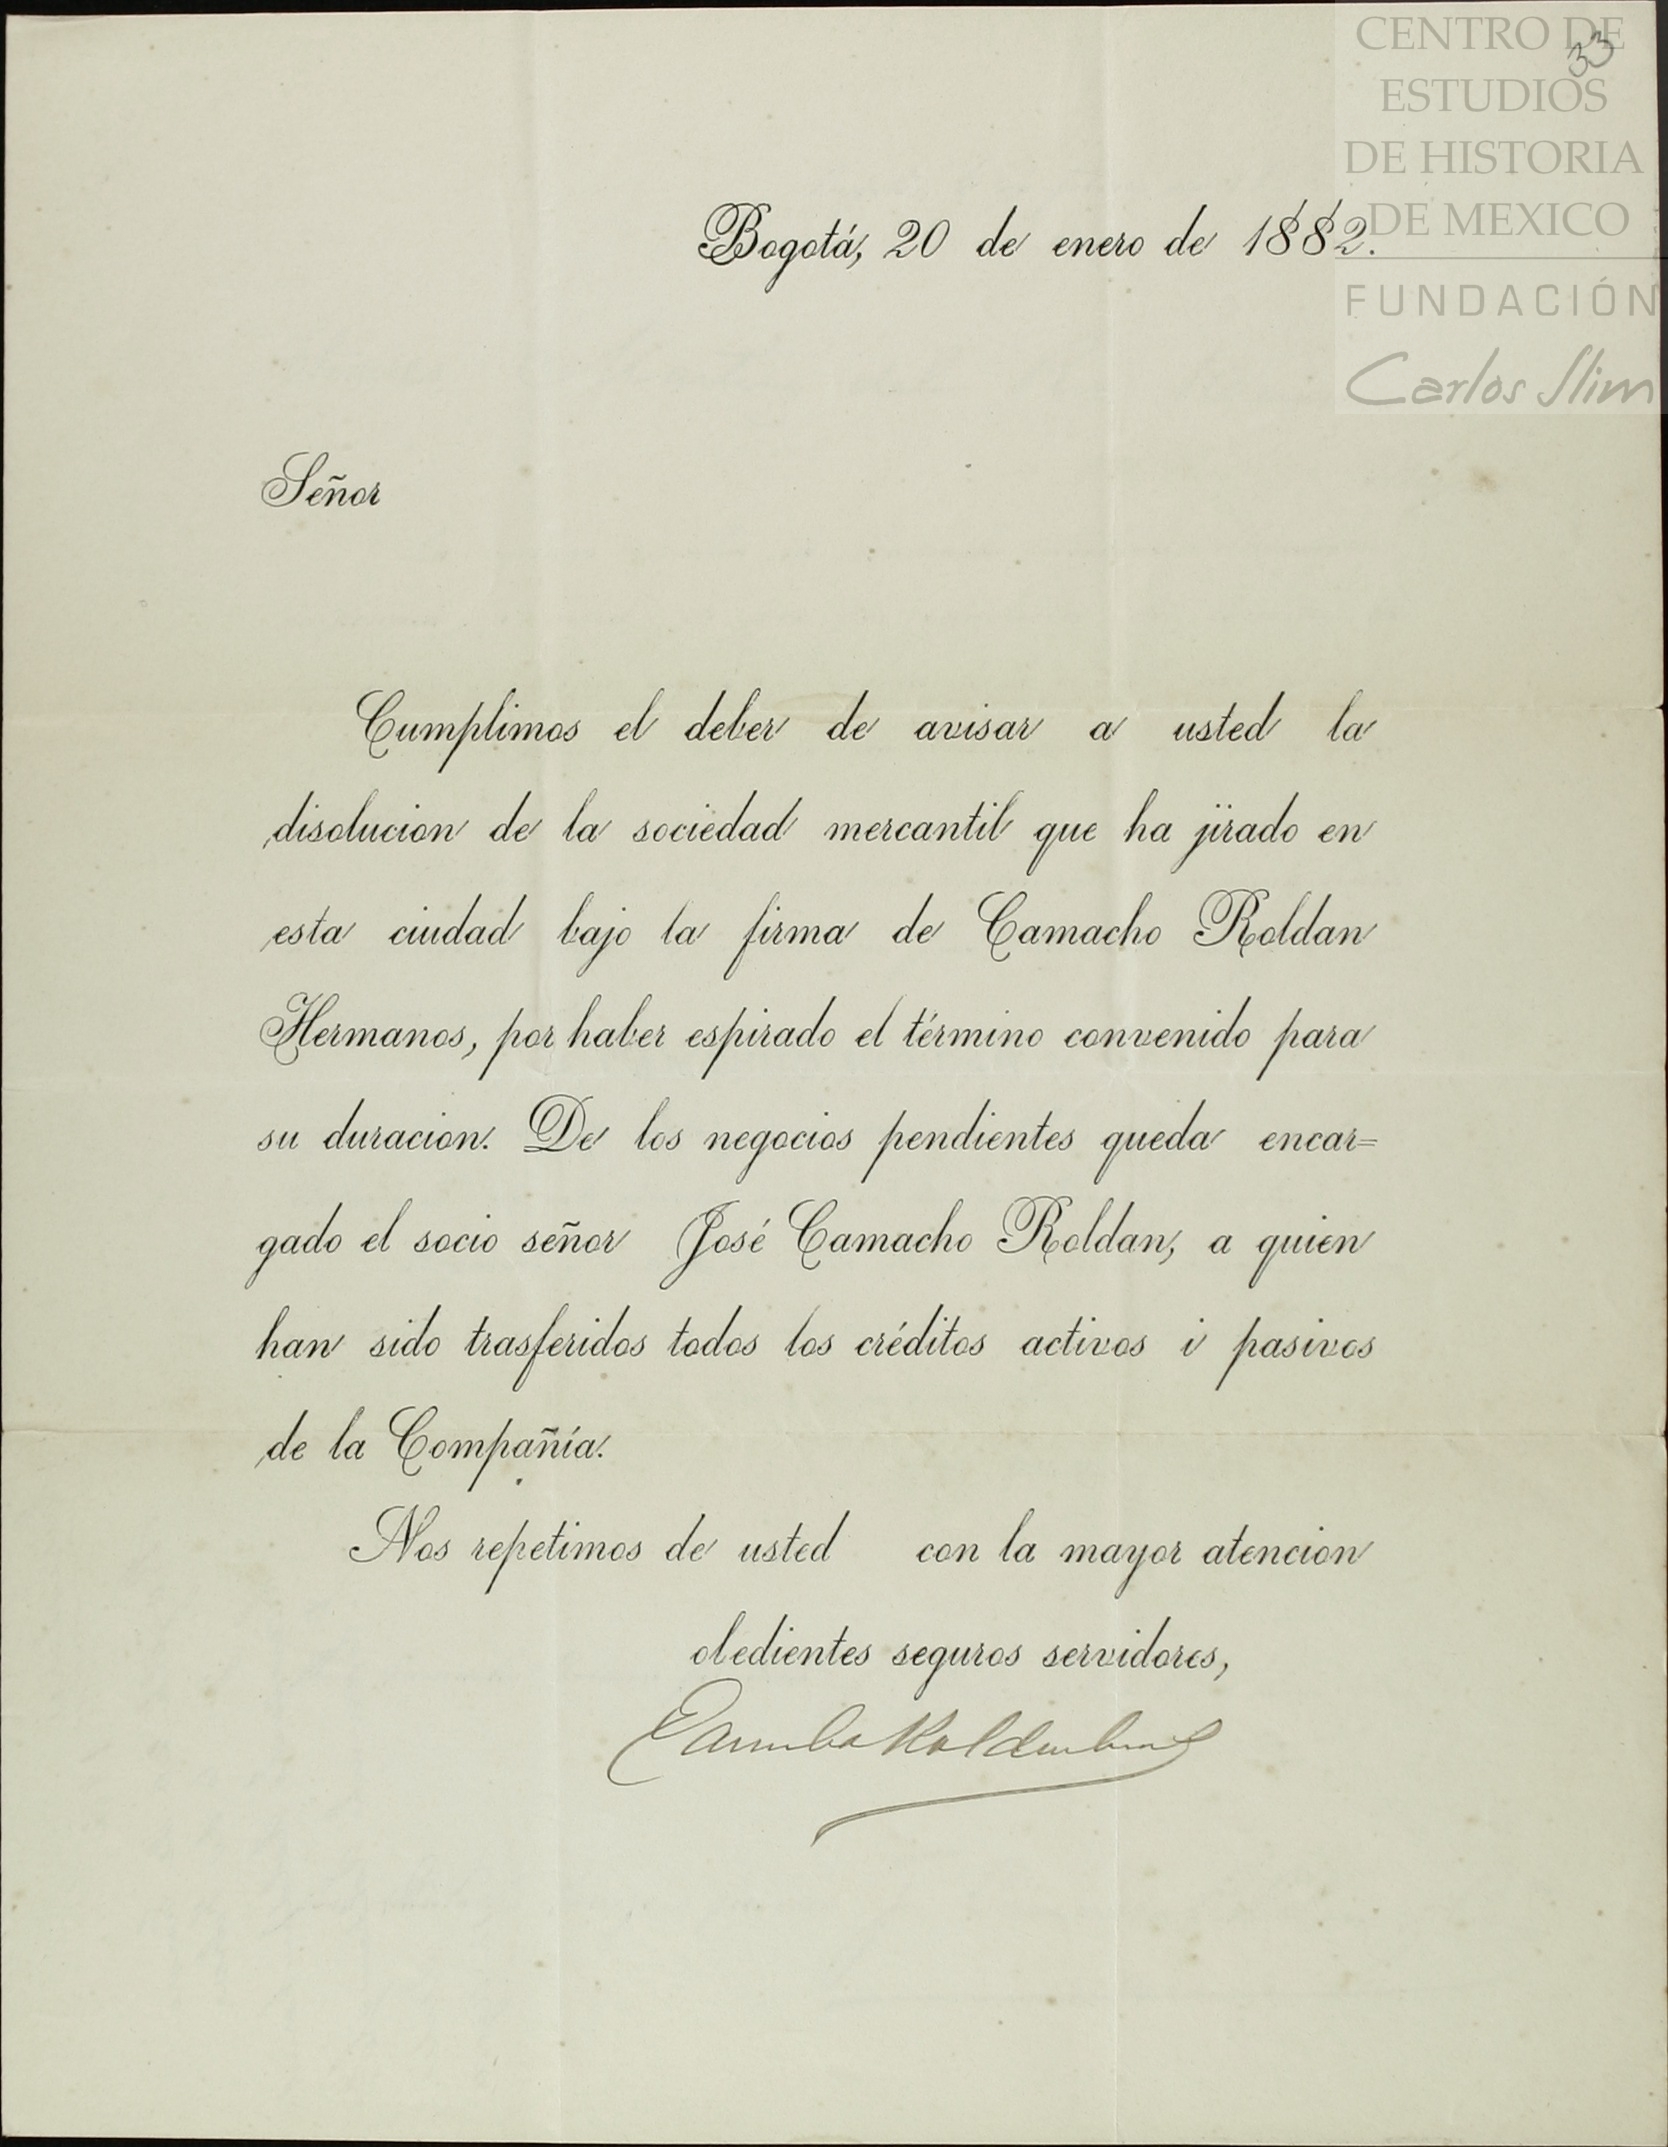 CENTRO DE
33
ESTUDIOS
DE HISTORIA
DE MEXICO
FUNDACIÓN
Carlos Slim
Bogotá, 20 de enero de 1882.
Señor
Cumplimos el deber de avisar a usted la
disolucion de la sociedad mercantil que ha jirado en
esta ciudad bajo la firma de Camacho Roldan
Hermanos, por haber espirado el término convenido para
su duracion. De los negocios pendientes queda encar=
gado el socio señor José Camacho Roldan, a quien
han sido trasferidos todos los créditos activos i pasivos
de la Compañía.
Nos repetimos de usted con la mayor atencion
obedientes seguros servidores,
Camacho Roldan Hermanos